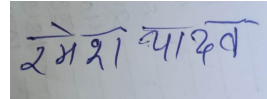 रमेश यादव